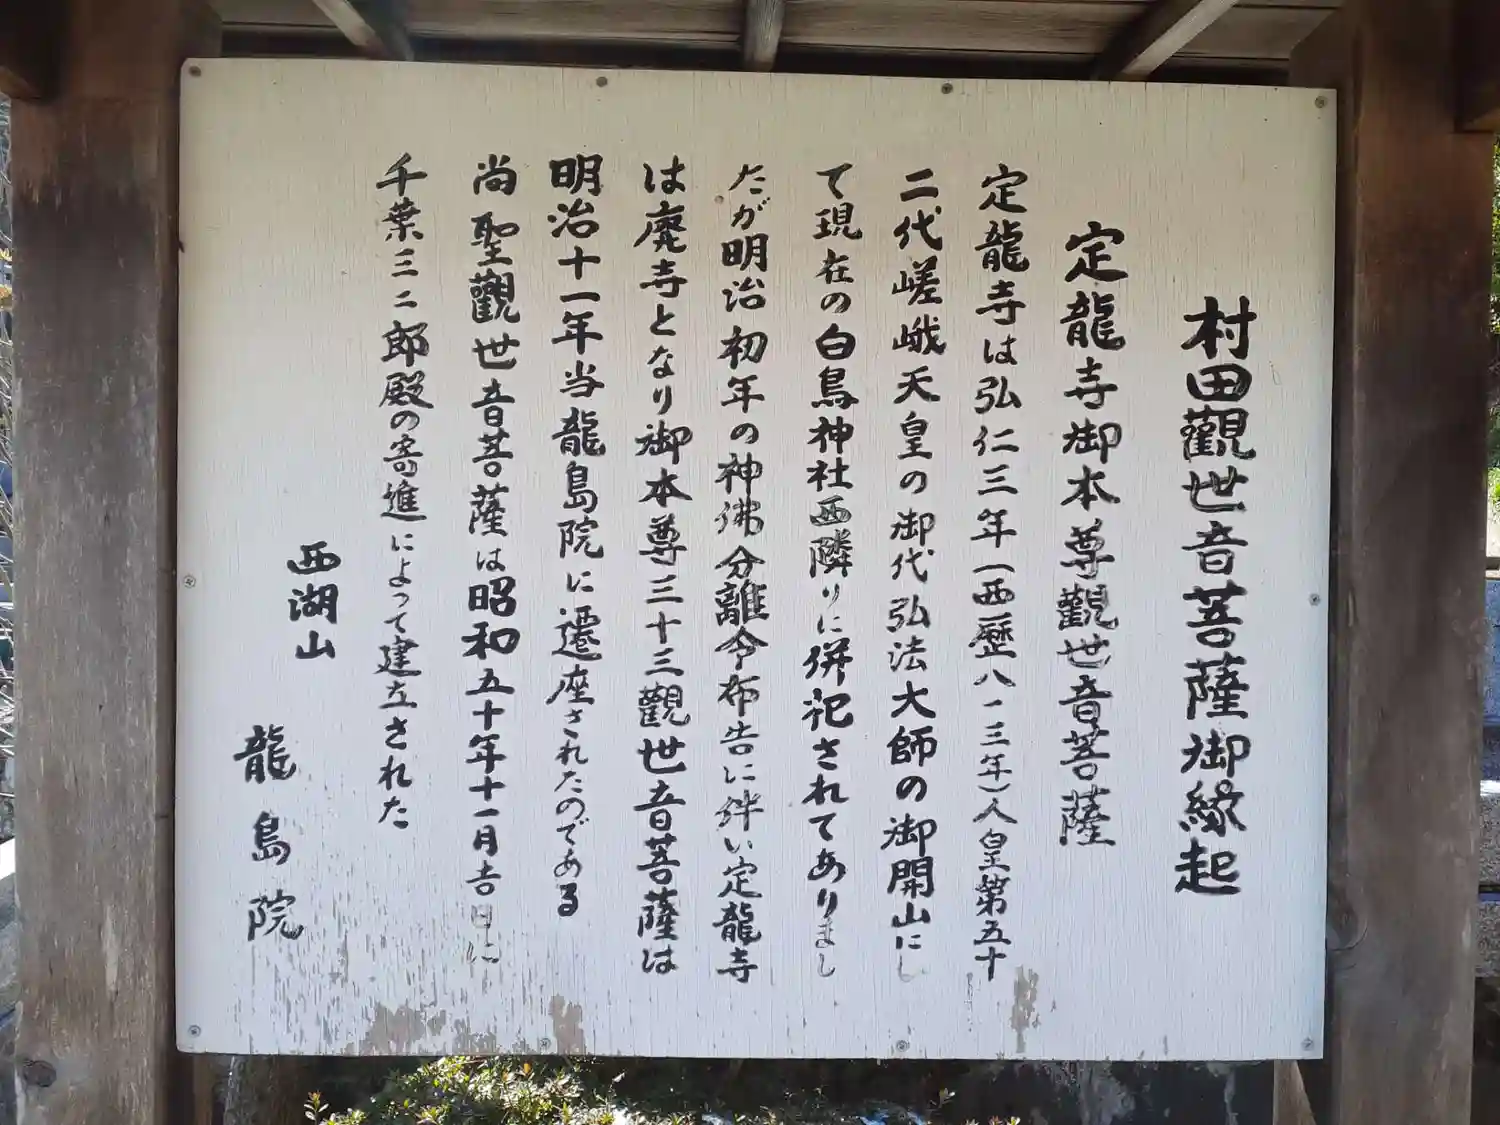 村田觀世音菩薩御縁起
定龍寺御本尊觀世音菩薩
定龍寺は弘仁三年(西歷八一三年)人皇第五十
二代嵯峨天皇の御代弘法大師の御開山にし
て現在の白鳥神社西隣りに併記されてありまし
たが明治初年の神佛分離令布告に絆い定龍寺
は廃寺となり御本尊三十三觀世音菩薩は
明治十一年当龍島院に遷座されたのである
尚聖觀世音菩薩は昭和五十年十一月吉日に
千葉三二郎殿の寄進によって建立された
西湖山 龍島院